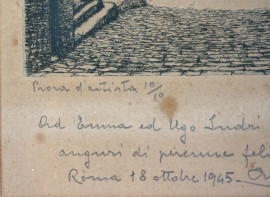 Prova d'artista 10/10
Ad Emma ed Ugo Indri
auguri di perenne feli
Roma 18 ottobre 1945 -